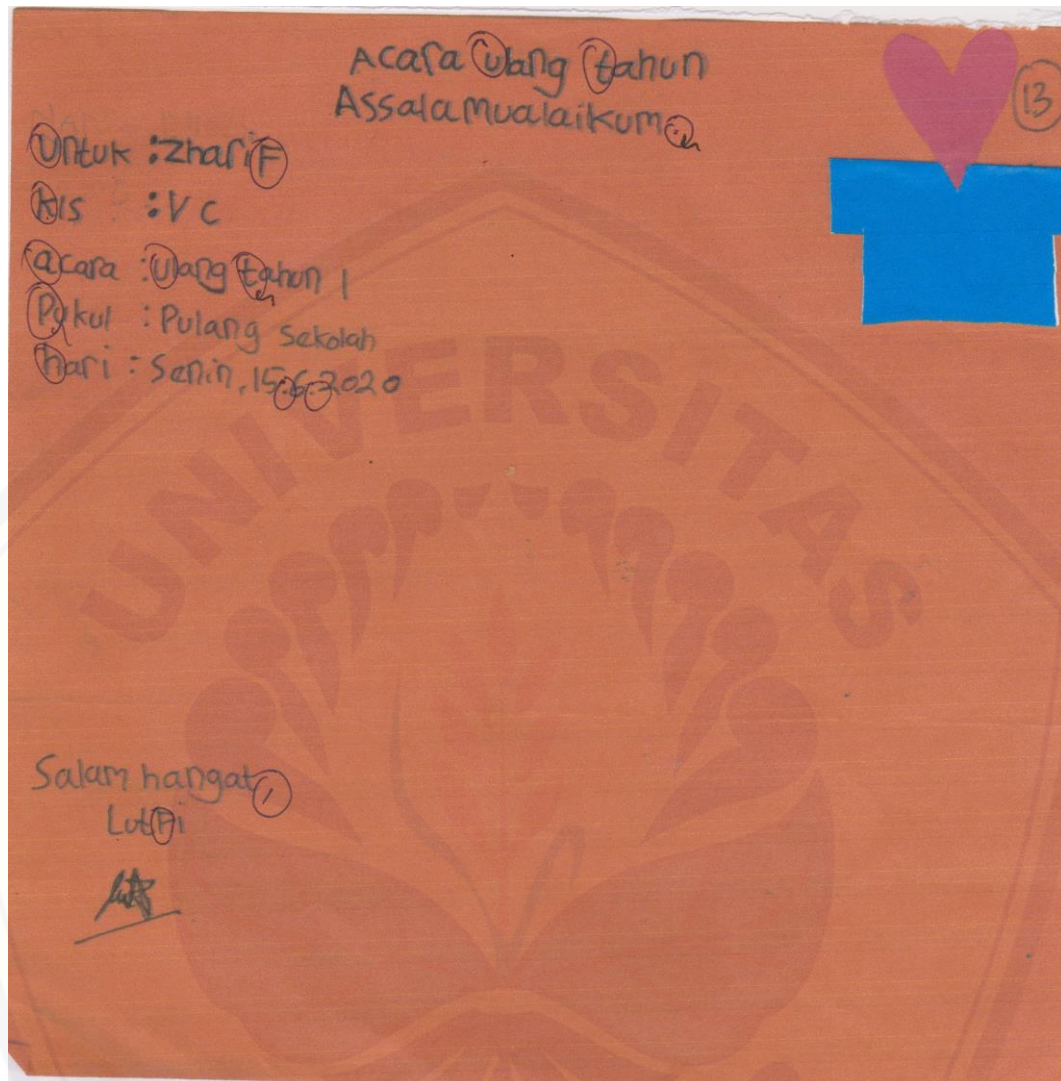 Acara ulang tahun
AssalaMualaikum
13
untuk : zhariF
kls : V c
acara : ulang tahun 1
Pukul : Pulang sekolah
hari : Senin, 15.6.2020
UNIVERSITAS
Salam hangat,
LutFi